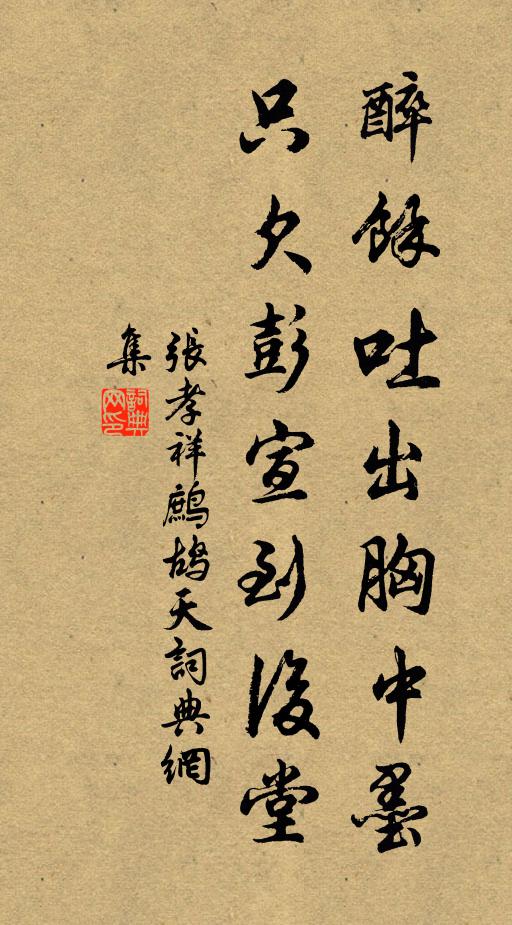 醉餘吐出胸中墨
只欠彭宣到後堂
張孝祥鷓鴣天詞典網
集
詞典
网印